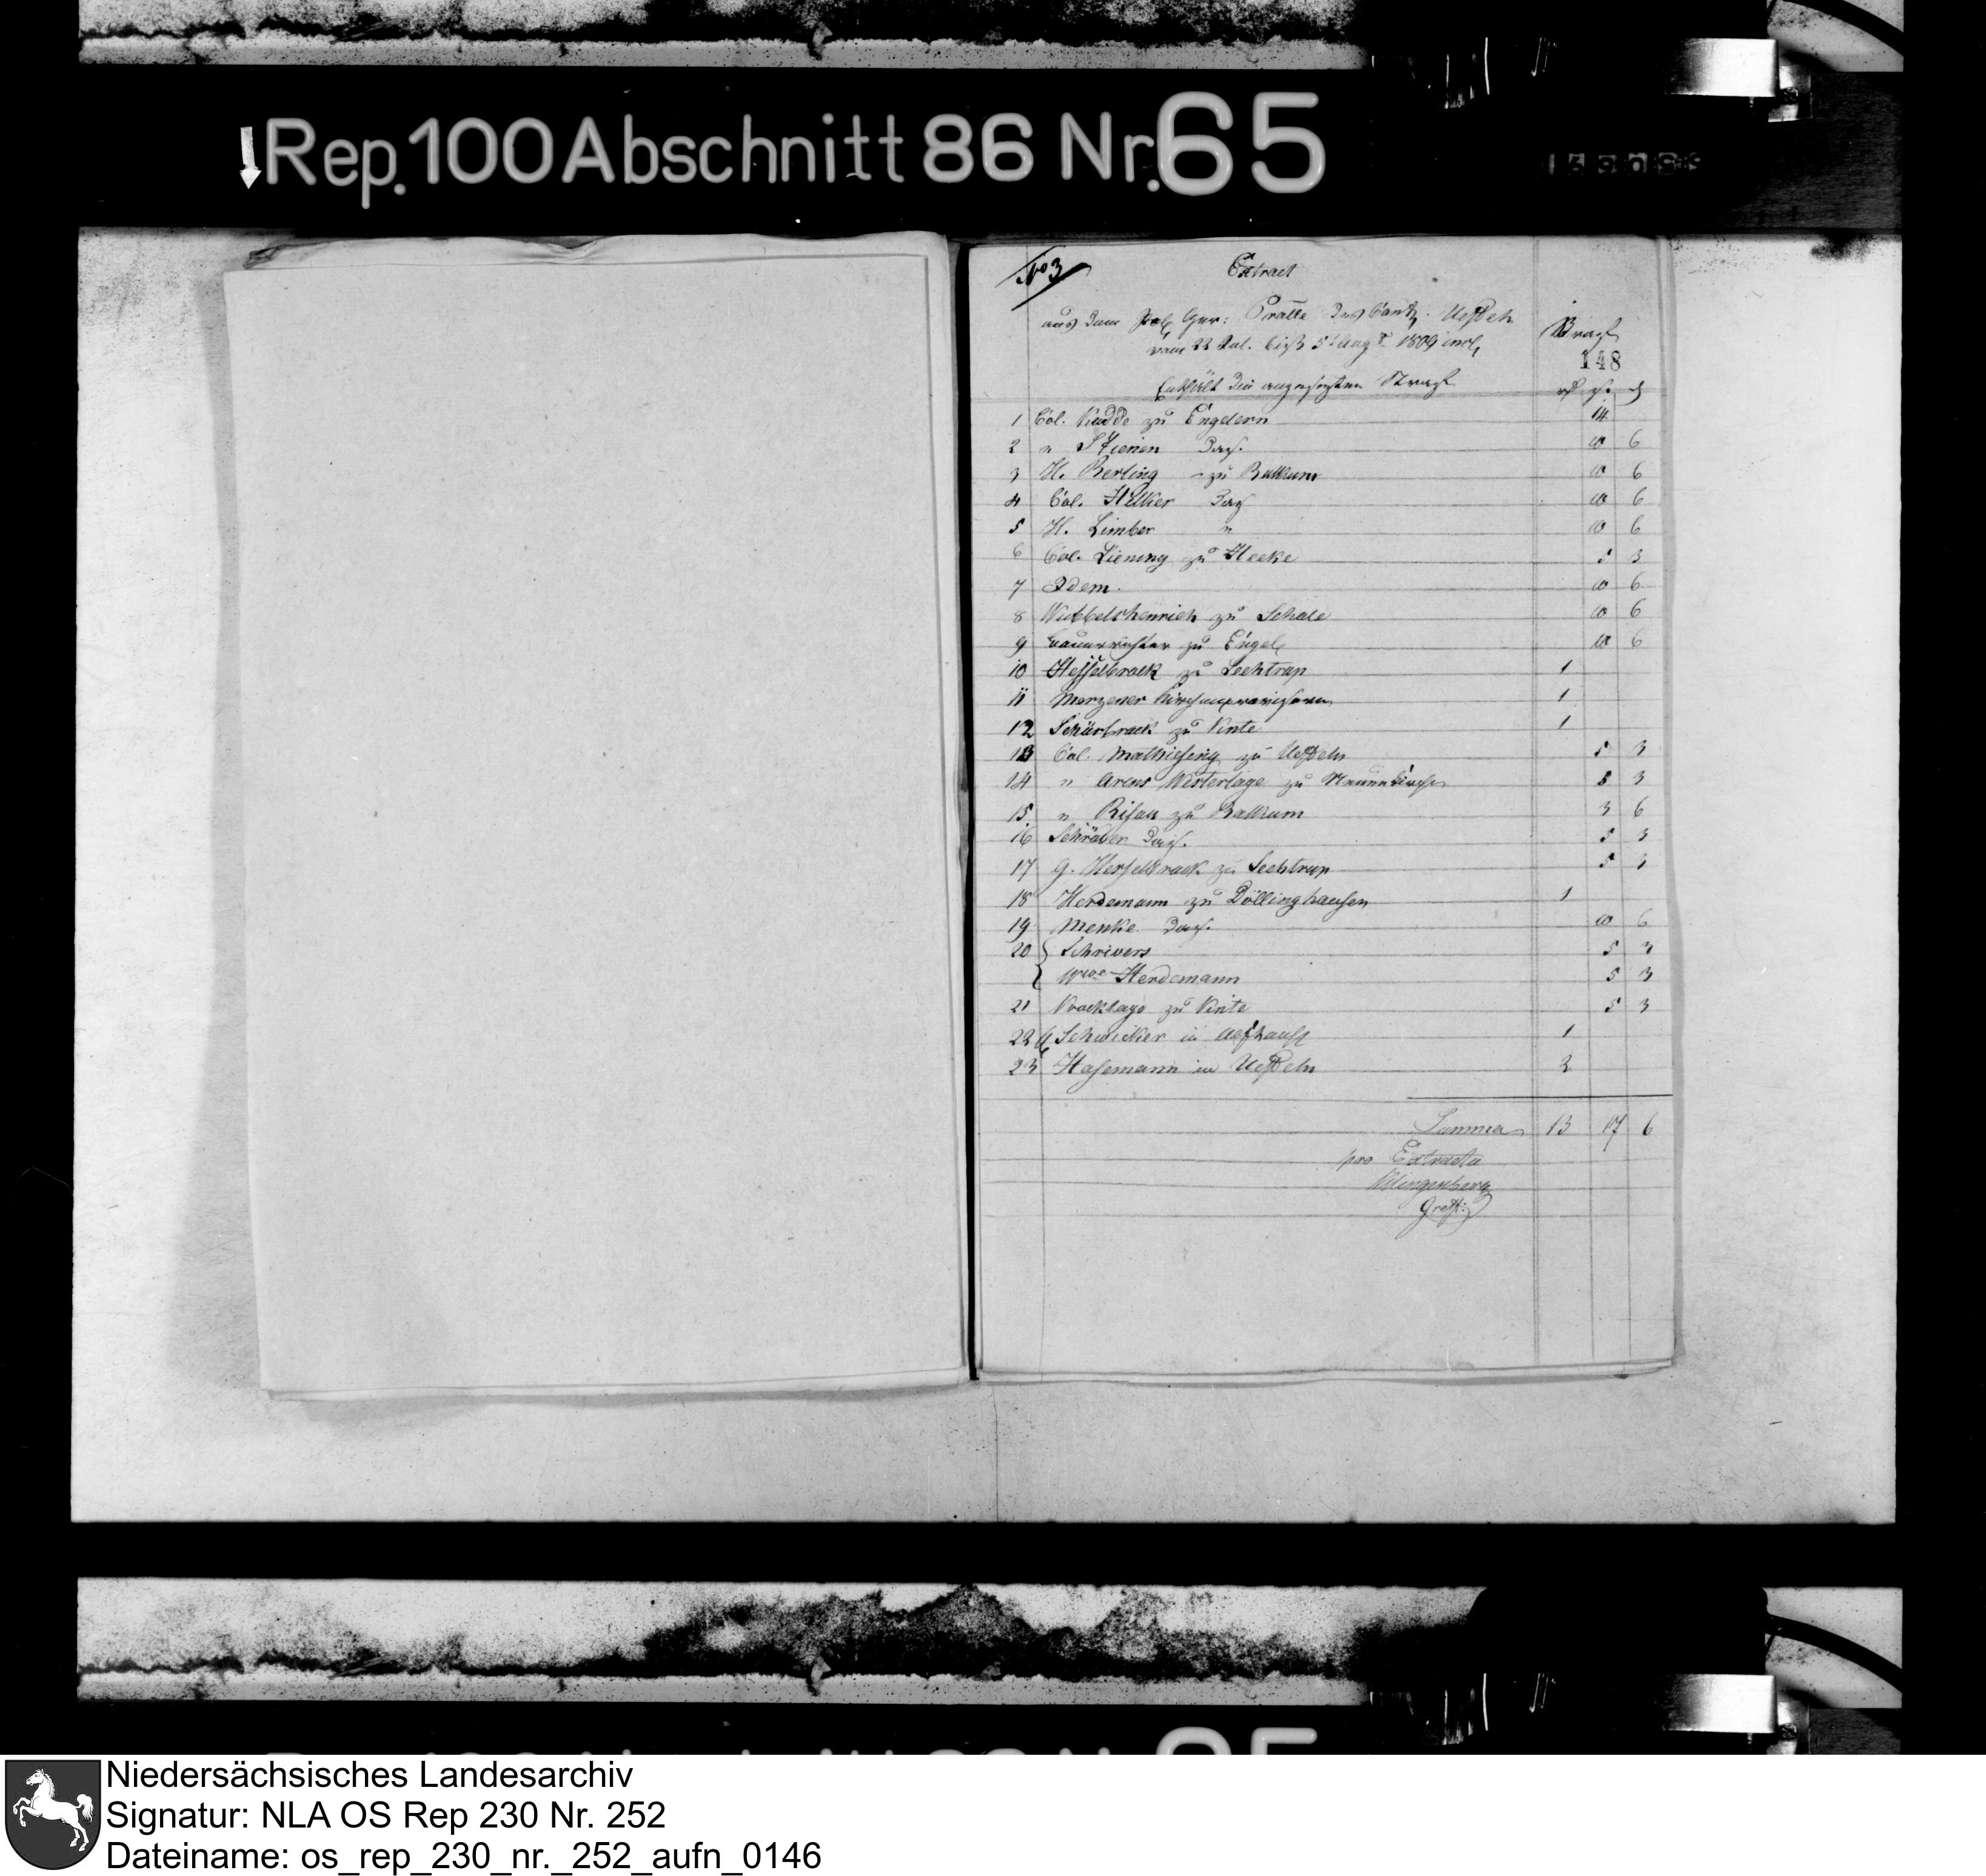 Rep. 100 Abschnitt 86 Nr. 65
No 3
Extract
aus dem Pol. Ger: Prot. des Cant. Ueffeln
vom 22 Jul. biß 5t Aug 1809 incl.
Enthält die angesezten Strafe
Strafe
148
1 Col. Kudde zu Engelern 14
2 " Stienen Das. 10 6
3 H. Berling zu Balkum 10 6
4 Col. Hilker Das 10 6
5 H. Limber " 10 6
6 Col. Liening zu Heeke 5 3
7 Idem. 10 6
8 Wubbelshenrich zu Schale 10 6
9 Bauerrichter zu Engel. 10 6
10 Hesselbrock zu Lechtrup 1
11 Merzener Kirchenprovisoren 1
12 Schürbrock zu Vinte 1
13 Col. Mathiesing zu Ueffeln 5 3
14 " Arens Westerlage zu Neuenkirchen 5 3
15 " Risau zu Balkum 3 6
16 Schröder Das. 5 3
17 G. Hesselbrock zu Lechtrup 5 3
18 Herdemann zu Döllinghausen 1
19 Menke Das. 10 6
20 Schrivers 5 3
Wwe Herdemann 5 3
21 Vocklage zu Vinte 5 3
22 Schwicker in 1
23 Hasemann in Ueffeln 2
Summa 13 17 6
pro Extractu
Klingenberg
Greff:
Niedersächsisches Landesarchiv
Signatur: NLA OS Rep 230 Nr. 252
Dateiname: os_rep_230_nr._252_aufn_0146